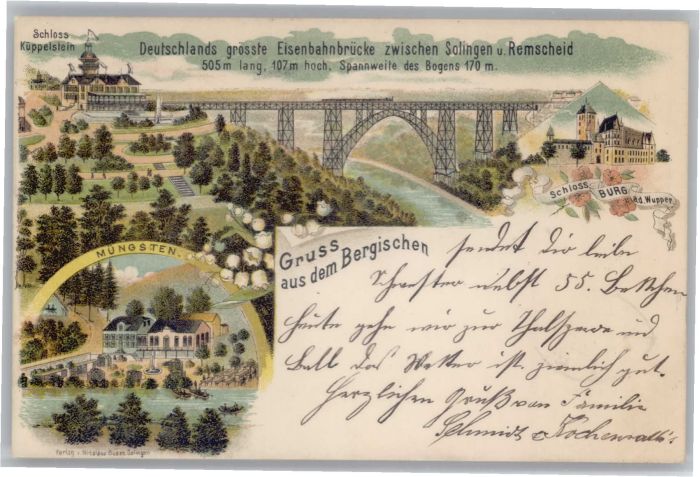 Schloss
Küppelstein
Deutschlands grösste Eisenbahnbrücke zwischen Solingen u. Remscheid
505 m lang, 107 m hoch, Spannweite des Bogens 170 m.
Schloss BURG a/d Wupper
MÜNGSTEN.
Gruss
aus dem Bergischen
sendet dir liebe
Schwester nebst
Heute gehn wir zur Thalsperre und
Ball das Wetter ist ziemlich gut.
Herzlichen Gruß von Familie
Schmidt
Verlag v. Nicolaus Solingen